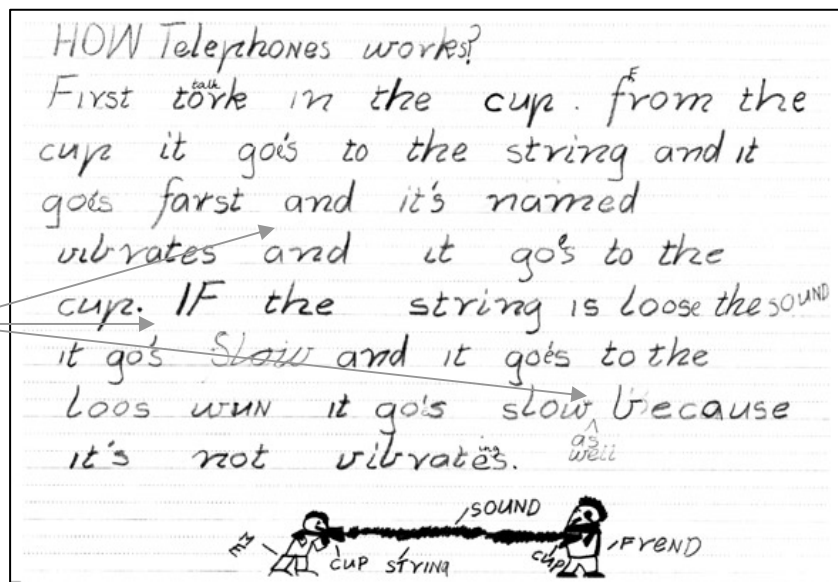 HOW Telephones works?
talk
First tork in the cup. from the
cup it go's to the string and it
goes farst and it's named
vibrates and it go's to the
cup. IF the string is loose the SOUND
it go's Slow and it goes to the
loos wun it go's slow because
as well
it's not vibrates.
ing
SOUND
ME
CUP STRING
CUP
FREND